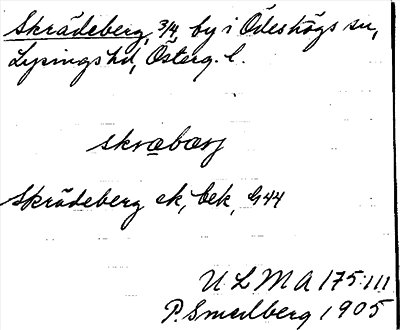 Skrädeberg, 3/4, by i Ödeshögs sn,
Lysings hd, Österg. l.
skræbærj
Skrädeberg ek, bek, G44
ULMA 175:111
P. Smedberg 1905